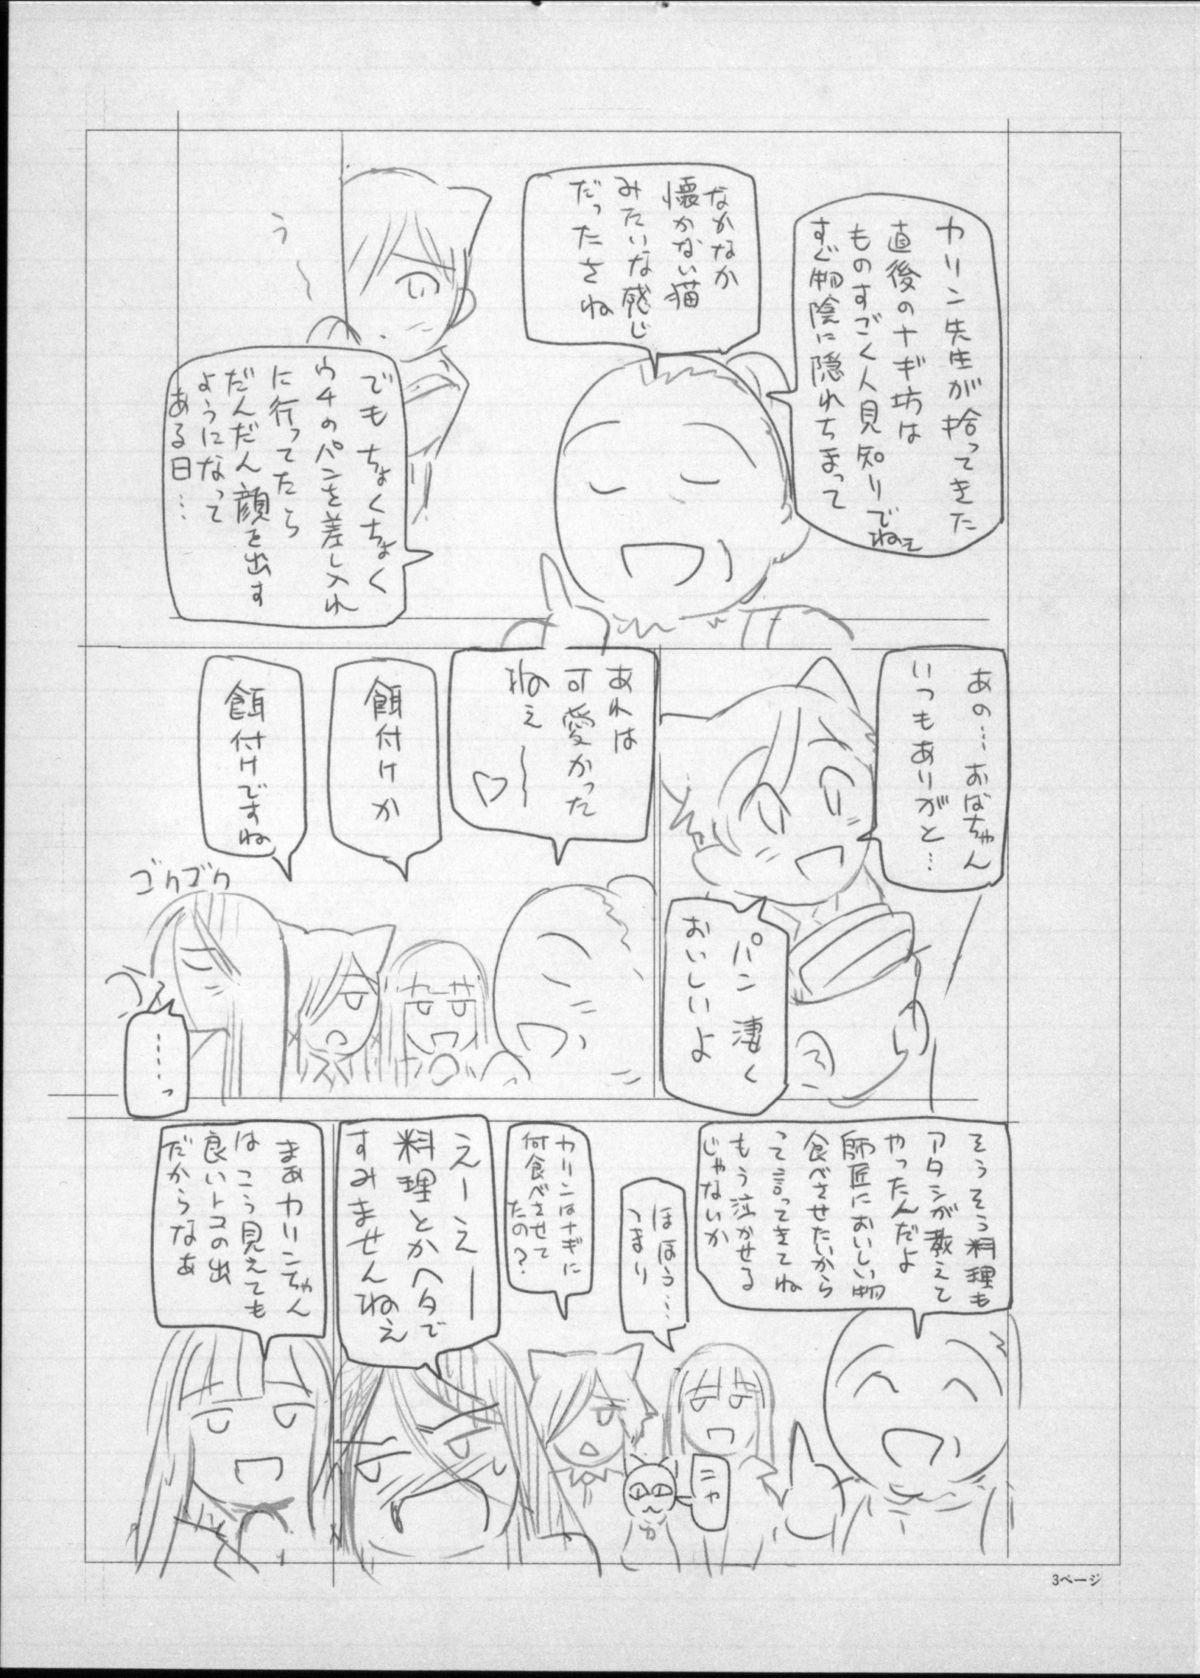 カリン先生が拾ってきた
直後のナギ坊は
ものすごく人見知りでねぇ
すぐ物陰に隠れちまって
なかなか
懐かない猫
みたいな感じ
だったさね
う〜
でもちょくちょく
ウチのパンを差し入れ
に行ってたら
だんだん顔を出す
ようになって
ある日…
あの…おばちゃん
いつもありがと…
パン凄く
おいしいよ
あれは
可愛かった
ねぇ〜♡
餌付けか
餌付けですね
ゴクゴク
……っ
そうそう料理も
アタシが教えて
やったんだよ
師匠においしい物
食べさせたいから
って言ってきてね
もう泣かせる
じゃないか
ほほう…
つまり
ニャ
カリンはナギに
何食べさせて
たの？
えーえー
料理とかヘタで
すみませんねぇ
まぁカリンちゃん
はこう見えても
良いトコの出
だからなぁ
3ページ